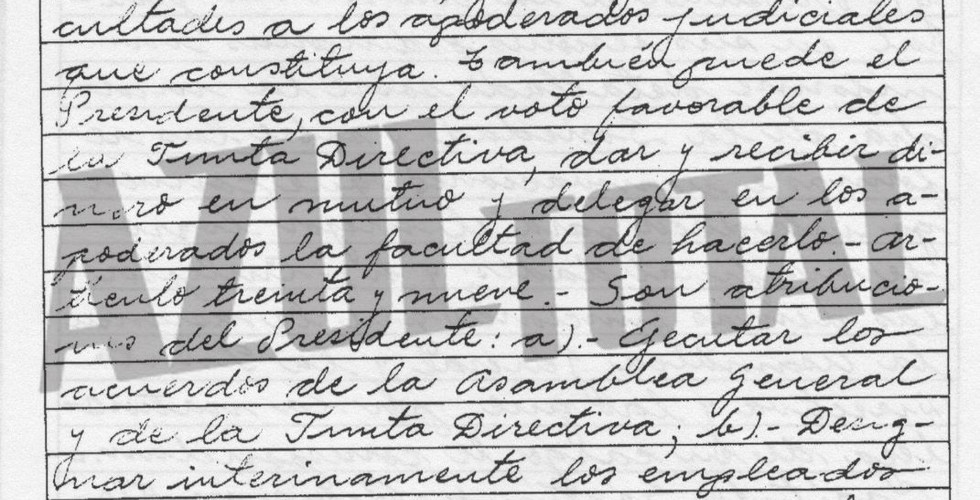 cultades a los apoderados judiciales
que constituya. También puede el
Presidente, con el voto favorable de
la Junta Directiva, dar y recibir di-
nero en mutuo y delegar en los a-
poderados la facultad de hacerlo.- Ar-
tículo treinta y nueve.- Son atribucio-
nes del Presidente: a).- Ejecutar los
acuerdos de la Asamblea General
y de la Junta Directiva; b).- Desig-
nar interinamente los empleados
AZUL TOTAL